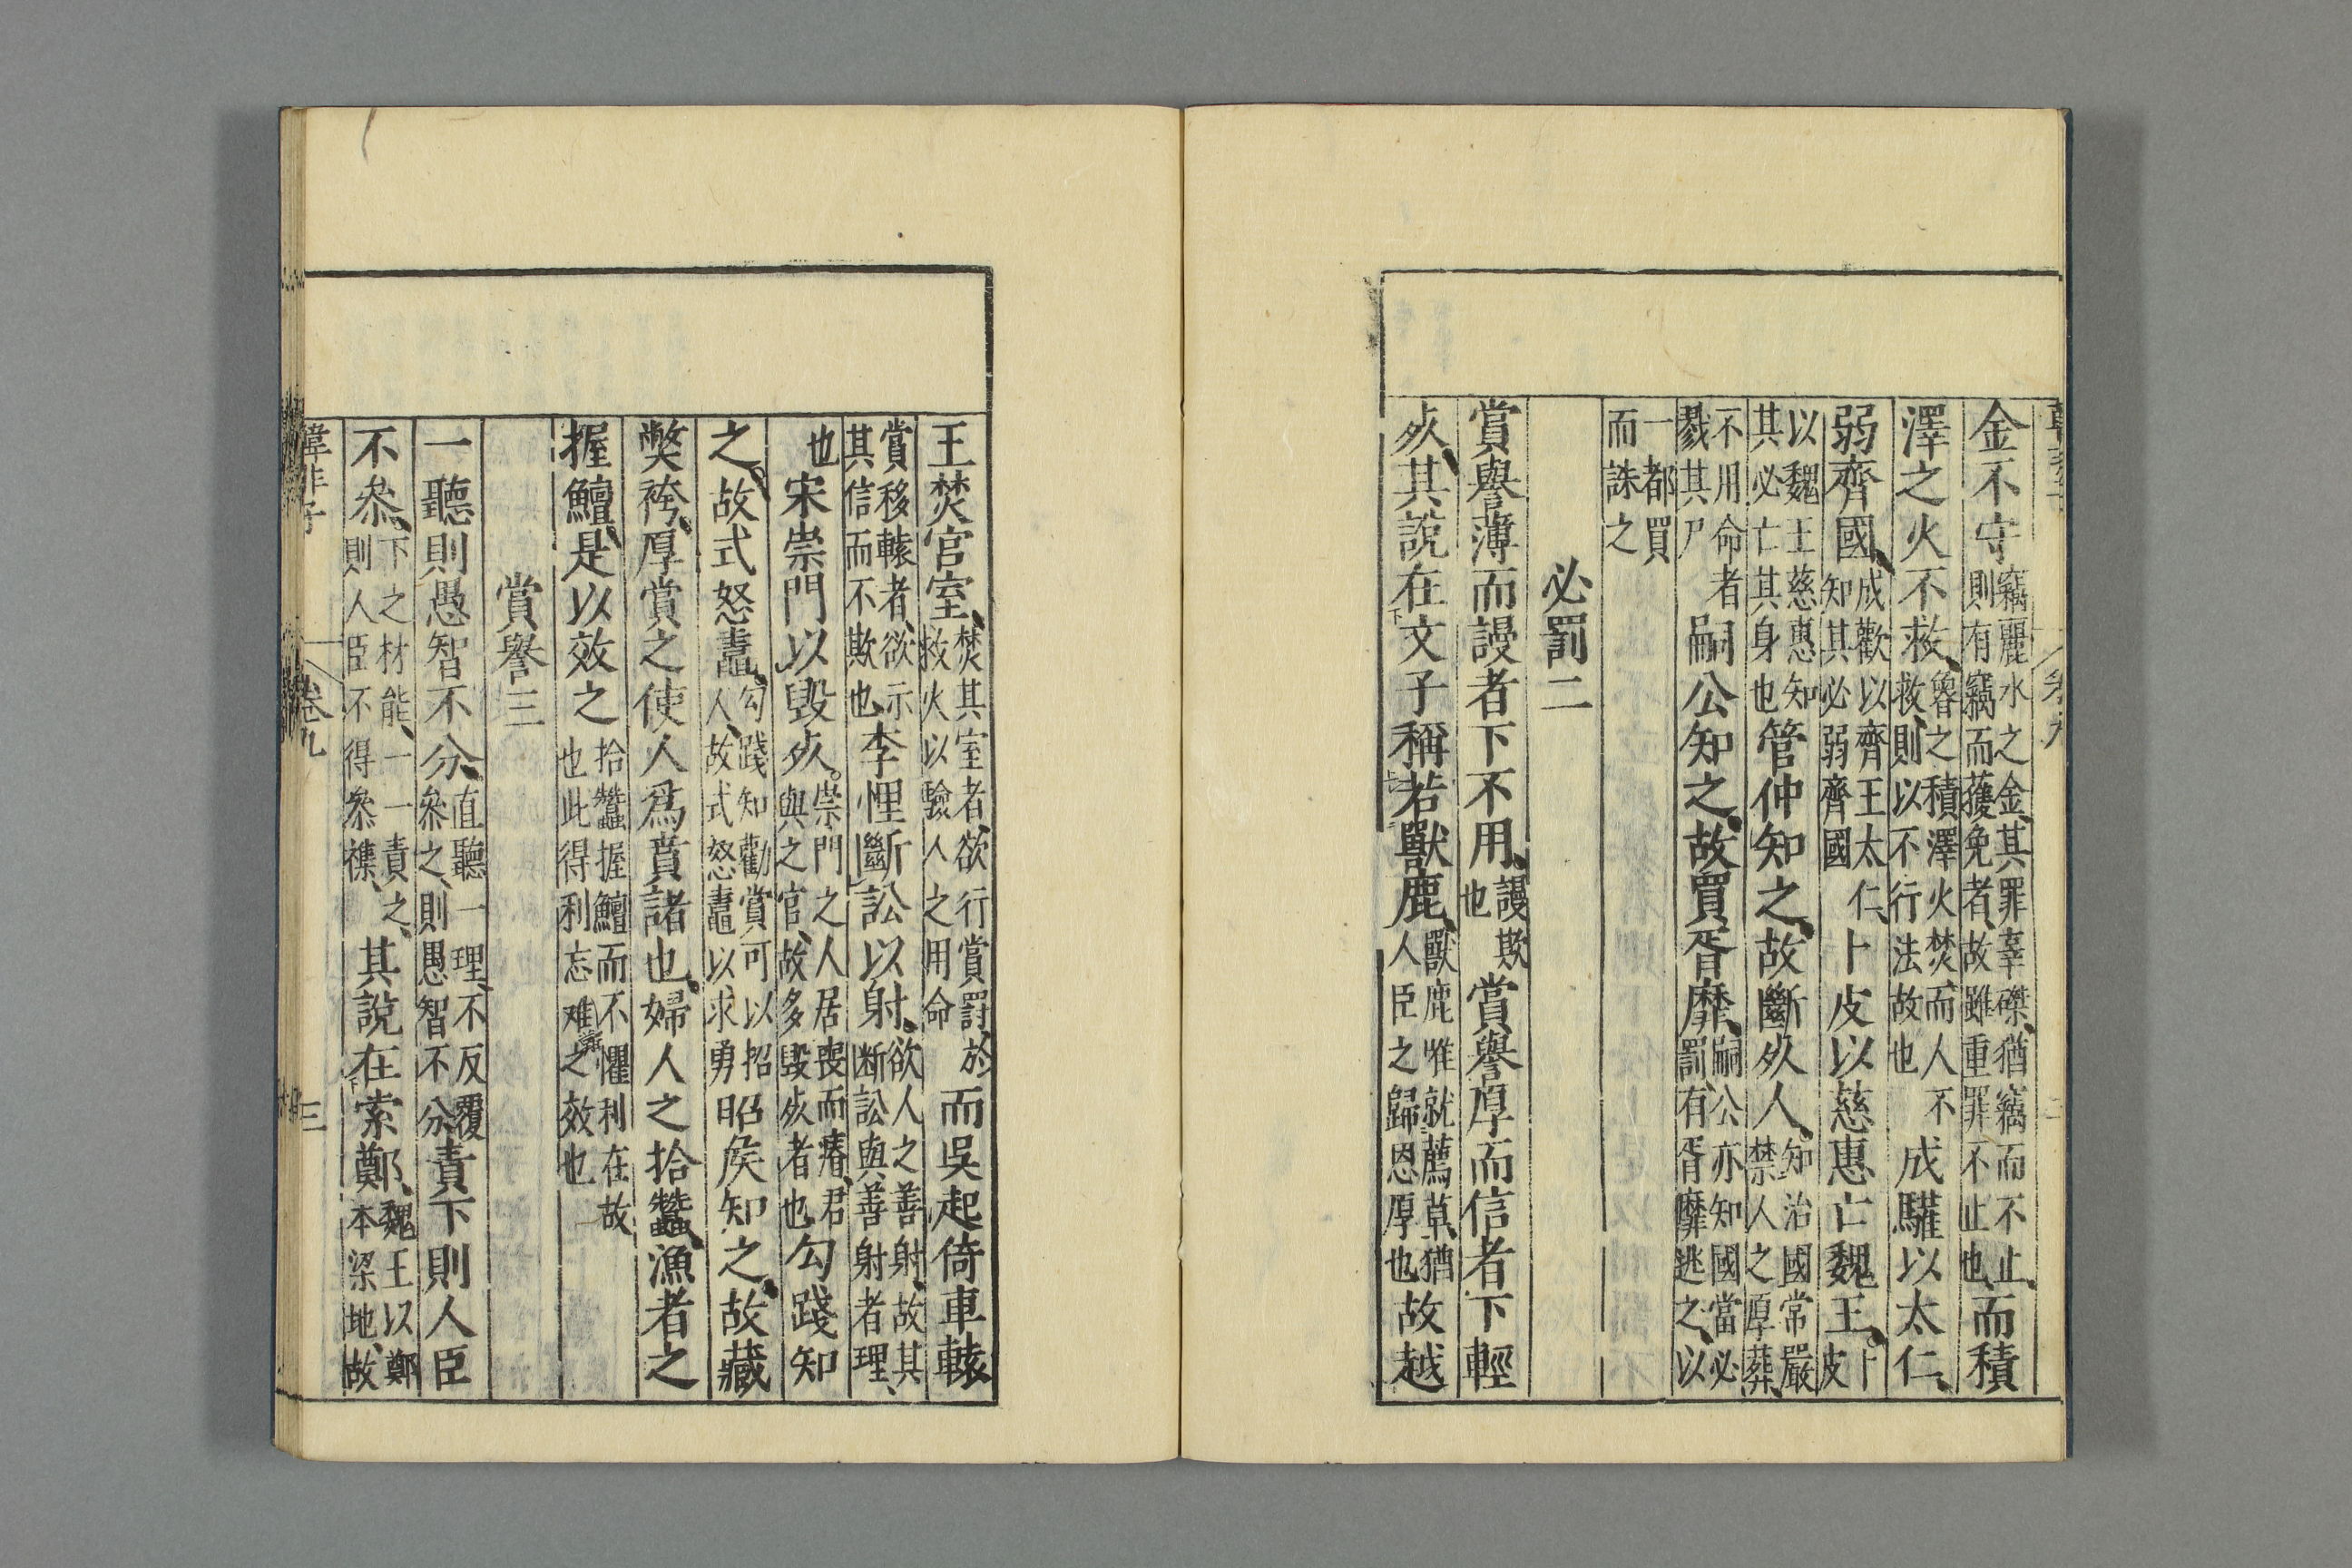 金不守竊麗水之金、其罪辜磔、猶竊而不止、則有竊而獲免者、故雖重罪不止也、而積
澤之火不救、魯之積澤火焚、而人不救、則以不行法故也成驩以太仁、
弱齊國、成歡以齊王太仁、知其必弱齊國卜皮以慈惠亡魏王。卜皮
以魏王慈惠知其必亡其身也管仲知之、故斷死人、知治國常嚴禁人之厚葬、
不用命者戮其尸嗣公知之、故買胥靡、嗣公亦知國當必罰、有胥靡逃之、以
一都買而誅之
必罰二
賞譽薄而謾者下不用、謾欺也賞譽厚而信者下輕
死、其說在文子稱若獸鹿、獸鹿唯就薦草、猶人臣之歸恩厚也故越
王焚官室、焚其室者、欲行賞罰、於救火以驗人之用命而吳起倚車轅
賞移轅者、欲示其信而不欺也李悝斷訟以射、欲人之善射、故其断訟與善射者理、
也宋崇門以毀死。崇門之人居喪而瘠、君與之官、故多毀死者也勾踐知
之、故式怒鼃、勾踐知勸賞可以招人、故式怒鼃以求勇昭矦知之、故藏
獘袴、厚賞之使人爲賁諸也、婦人之拾蠶、漁者之
握鱣、是以效之拾蠶握鱣而不懼利在故也此得利忘难之效也
賞譽三
一聽則愚智不分、直聽一理、不反覆參之、則愚智不分責下則人臣
不參、下之材能、一一責之、則人臣不得參襍、其說在索鄭、魏王以鄭本梁地、故
韓非子 卷九 三